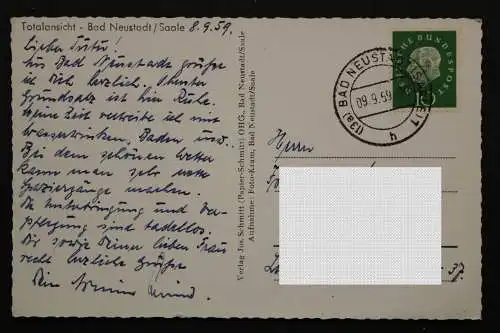 Totalansicht - Bad Neustadt/Saale 8.9.59.
Lieber
Aus Bad Neustadt grüße
ich Dich herzlich. Oberster
Grundsatz ist hier Ruhe.
Meine Zeit vertreibe ich mit
Wassertrinken, Baden usw.
Bei dem schönen Wetter
kann man sehr nette
Spaziergänge machen.
Die Unterbringung und Ver-
pflegung sind tadellos.
Dir sowie Deiner lieben Frau
recht herzliche Grüße
Dein
Verlag Jos. Schmitt (Papier-Schmitt) OHG., Bad Neustadt/Saale
Aufnahme: Foto-Kram, Bad Neustadt/Saale
DEUTSCHE BUNDESPOST
(13a) BAD NEUSTADT
09.9.59
h
Herrn
37.